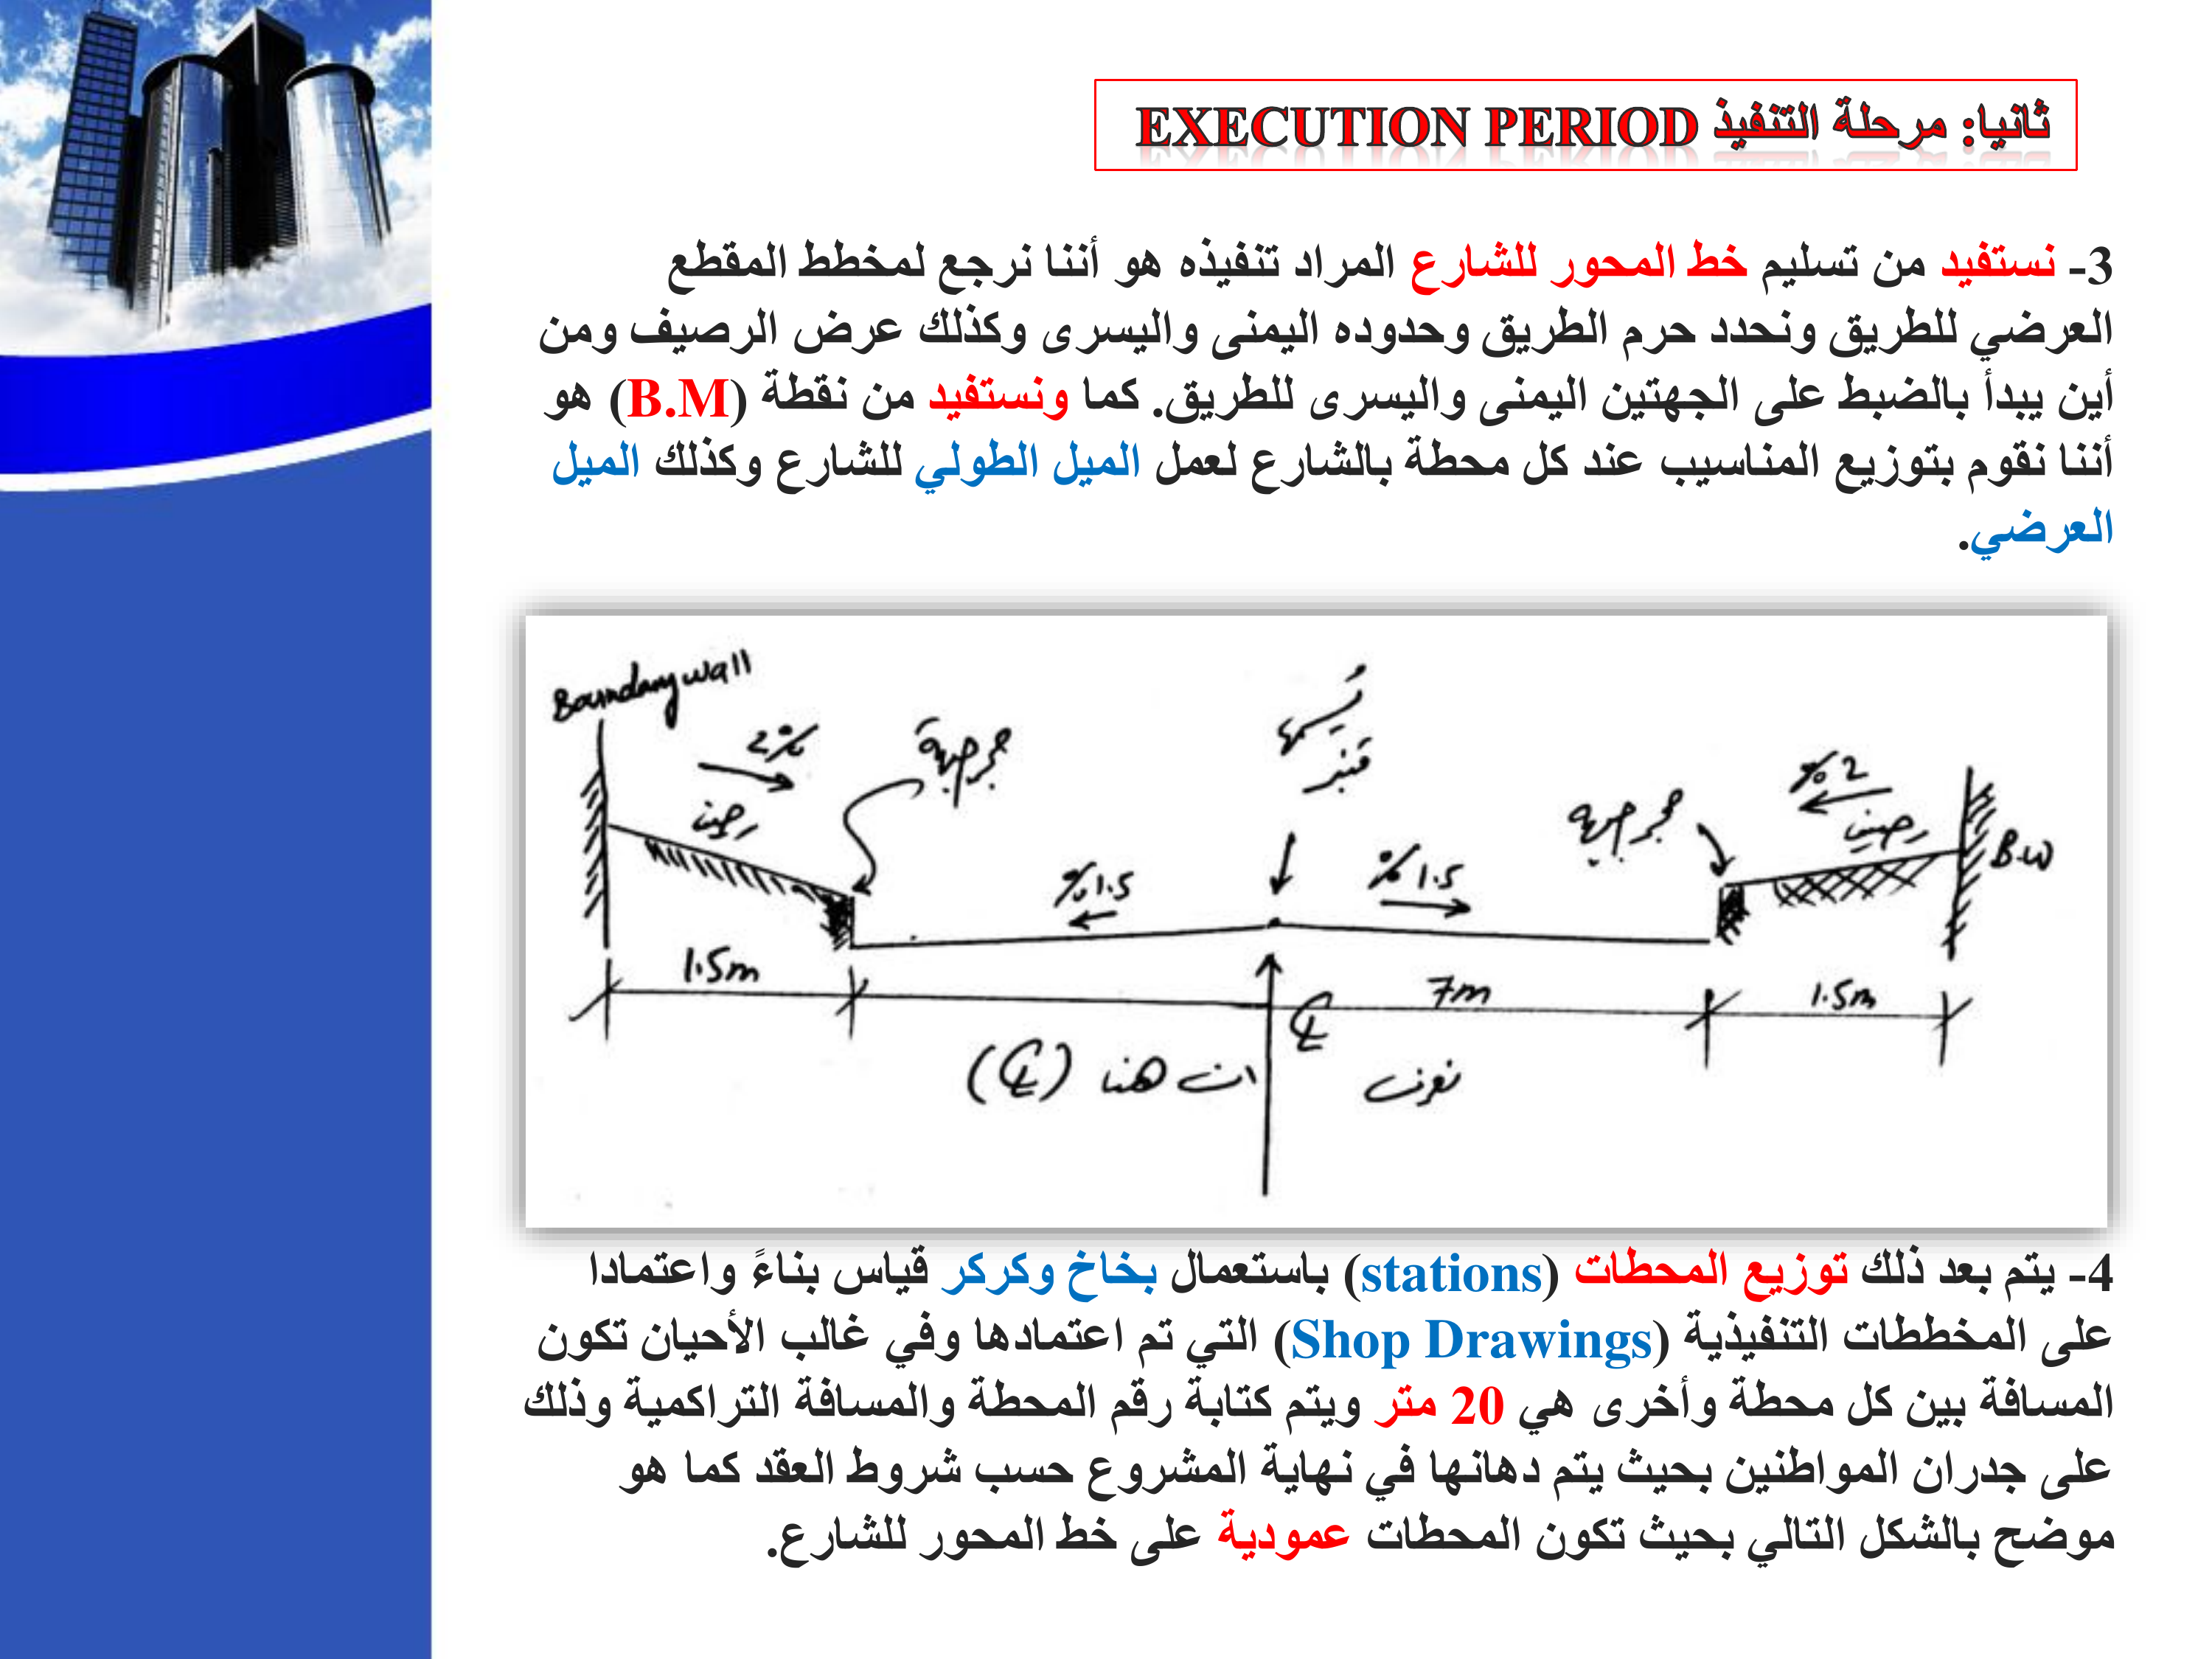 ثانيا: مرحلة التنفيذ EXECUTION PERIOD
3- نستفيد من تسليم خط المحور للشارع المراد تنفيذه هو أننا نرجع لمخطط المقطع
العرضي للطريق ونحدد حرم الطريق وحدوده اليمنى واليسرى وكذلك عرض الرصيف ومن
أين يبدأ بالضبط على الجهتين اليمنى واليسرى للطريق. كما ونستفيد من نقطة (B.M) هو
أننا نقوم بتوزيع المناسيب عند كل محطة بالشارع لعمل الميل الطولي للشارع وكذلك الميل
العرضي.
Boundary wall
2%
رصيف
%1.5
% 1.5
% 2
رصيف
B.W
1.5m
7m
1.5m
نفرض ان هنا (℄)
℄
4- يتم بعد ذلك توزيع المحطات (stations) باستعمال بخاخ وكركر قياس بناءً واعتمادا
على المخططات التنفيذية (Shop Drawings) التي تم اعتمادها وفي غالب الأحيان تكون
المسافة بين كل محطة وأخرى هي 20 متر ويتم كتابة رقم المحطة والمسافة التراكمية وذلك
على جدران المواطنين بحيث يتم دهانها في نهاية المشروع حسب شروط العقد كما هو
موضح بالشكل التالي بحيث تكون المحطات عمودية على خط المحور للشارع.